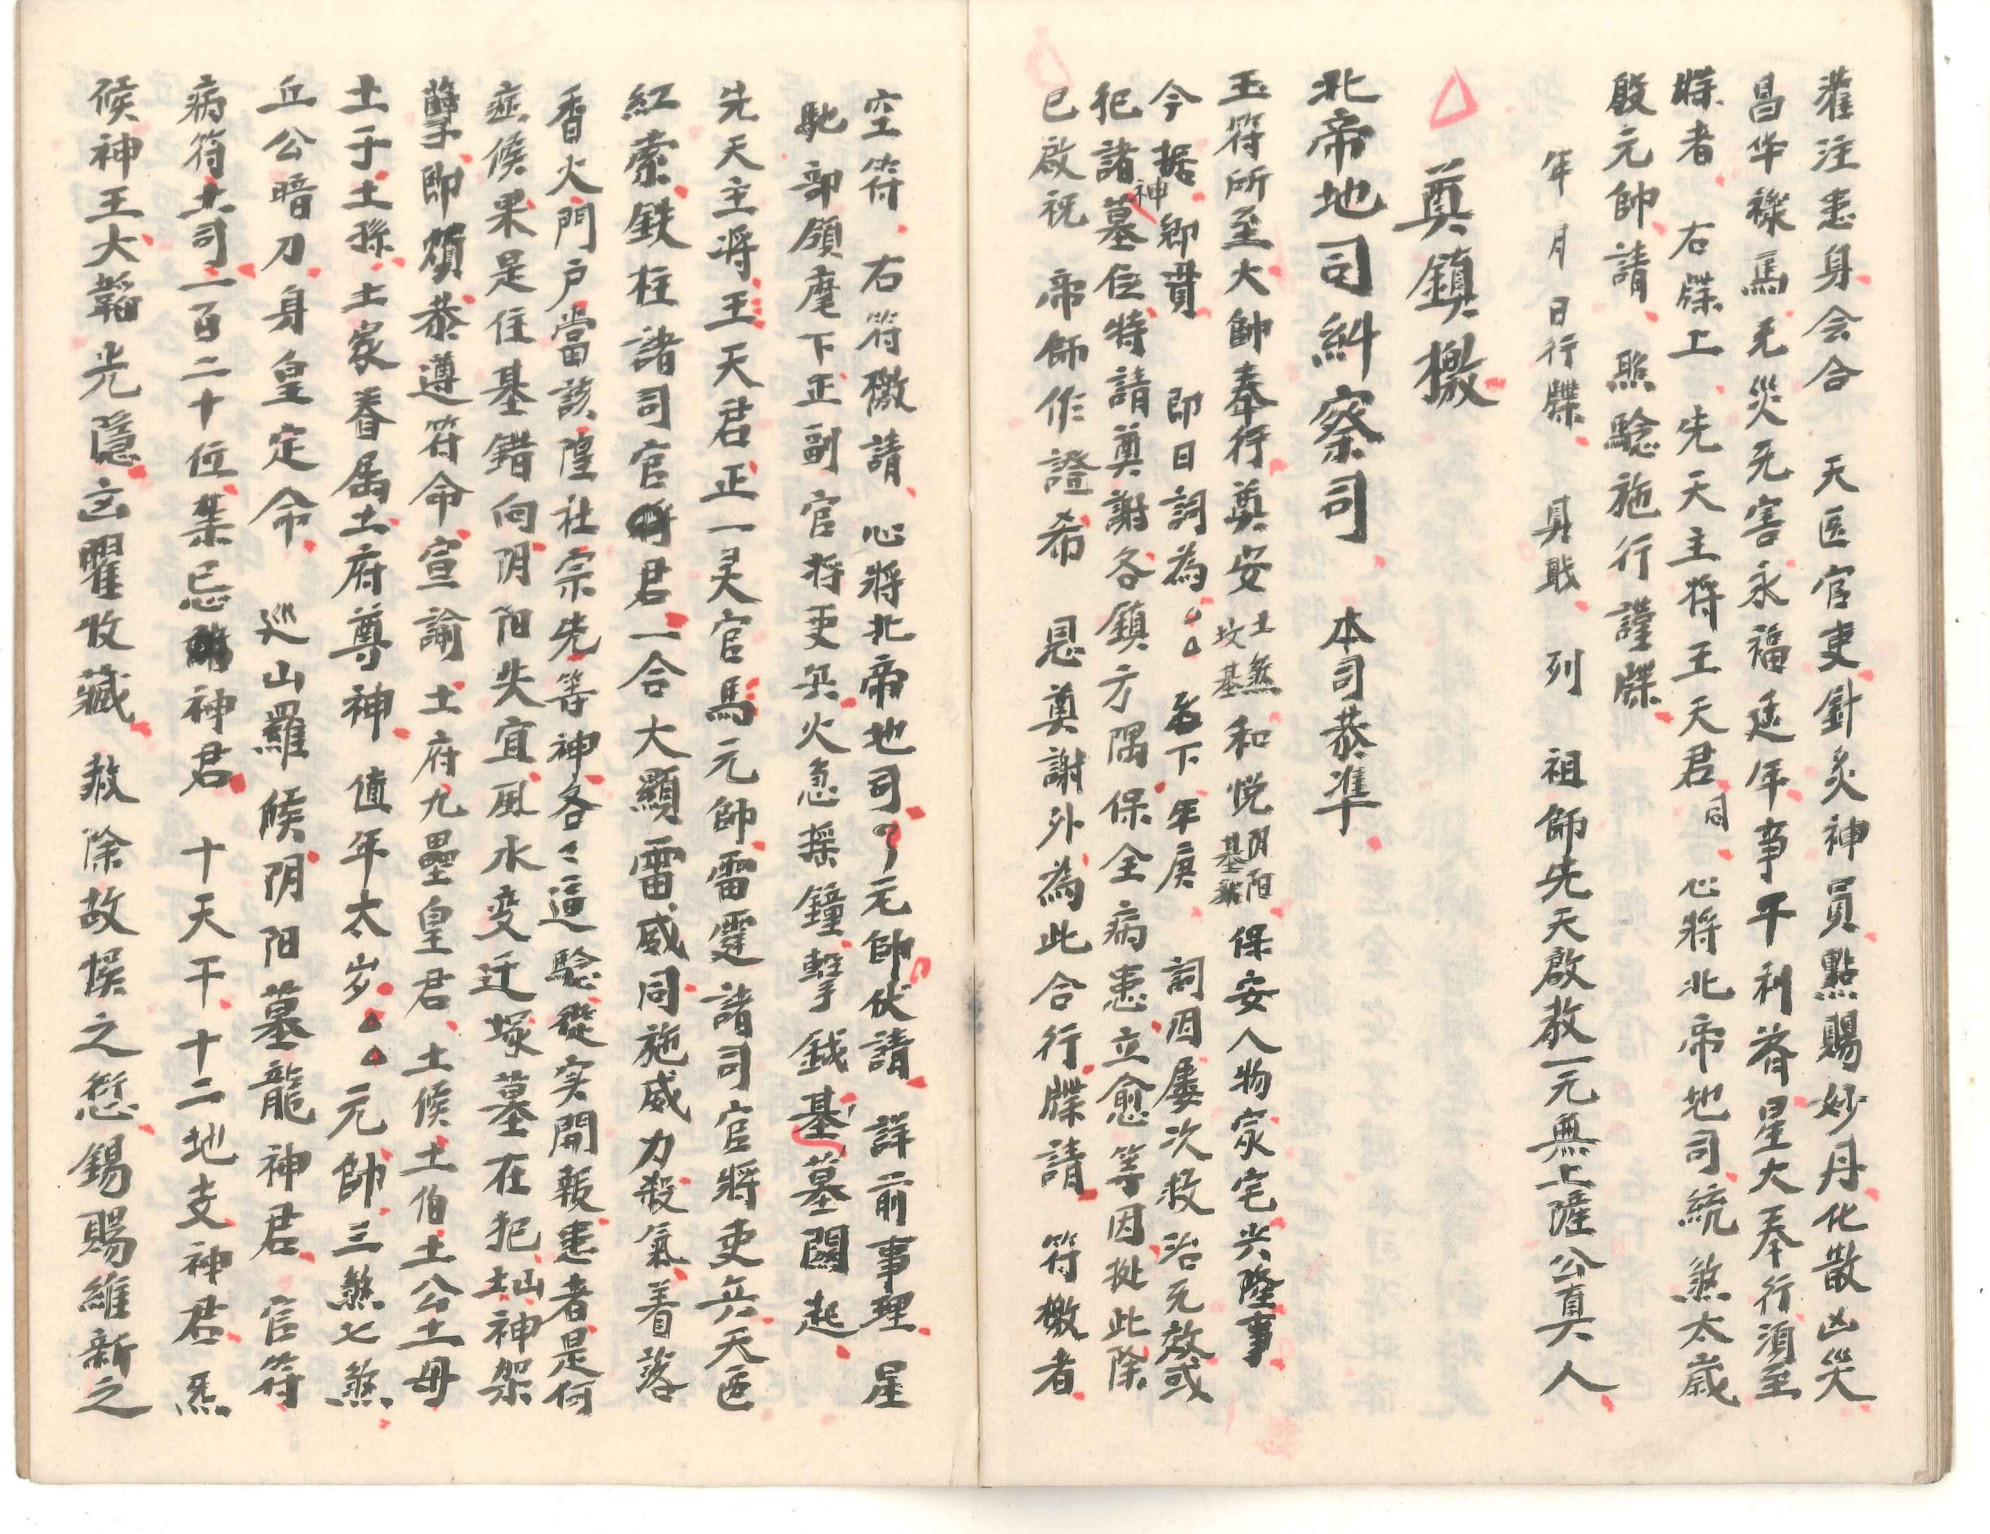 灌注患身会合　天医官吏針灸神員點賜妙丹化散凶災
昌华祿馬无災无害永福延年事平利昝星大奉行須至
牒者　右牒上　先天主將王天君同心將北帝地司統煞太歲
殷元帥請　照驗施行謹牒
年　月　日行牒　具戢　列　祖師先天啟教一元無上薩公真人
奠鎮檄
北帝地司糾察司　本司恭準
玉符所至大帥奉行奠安土煞坟基和悅阴阳基龍保安人物家宅兴隆事
今據鄉貫　即日詞為△△名下　年庚　詞因屢次救治无效或
犯諸神墓位特請奠謝各鎮方隅保全病患立愈等因挺此除
已啟祝　帝師作證希　恩奠謝外為此合行牒請　符檄者
空符　右符檄請　心將北帝地司卩元帥伏請　詳前事理　星
馳部領麾下正副官将吏兵火急摇鐘擊鉞基墓闕起
先天主將王天君正一灵官馬元帥雷霆諸司官將吏兵天医
紅索鉄柱諸司官君一合大顯雷威同施威力殺氣着落
香火門户當該隍社宗先等神各々逼驗從实開報患者是何
症候果是住基錯向阴阳失宜風水变迁塚墓在犯神架
孽即煩恭遵符命宣諭土府九壘皇君　土候土伯土公土母
土子土孫土家眷属土府尊神　值年太岁△△元帥三煞七煞
丘公暗刀身皇定命　巡山羅候阴阳墓龍神君　官符
病符土司一百二十位禁忌神君　十天干十二地支神君炁
候神王大韜光隱凶曜收藏　赦除故悞之愆錫賜維新之